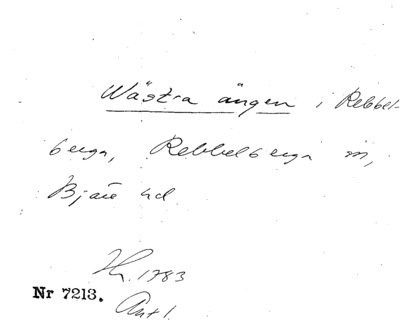 Wästra ängen i Rebbel-
berga, Rebbelberga sn,
Bjäre hd
Hr. 1783
Nr 7213.